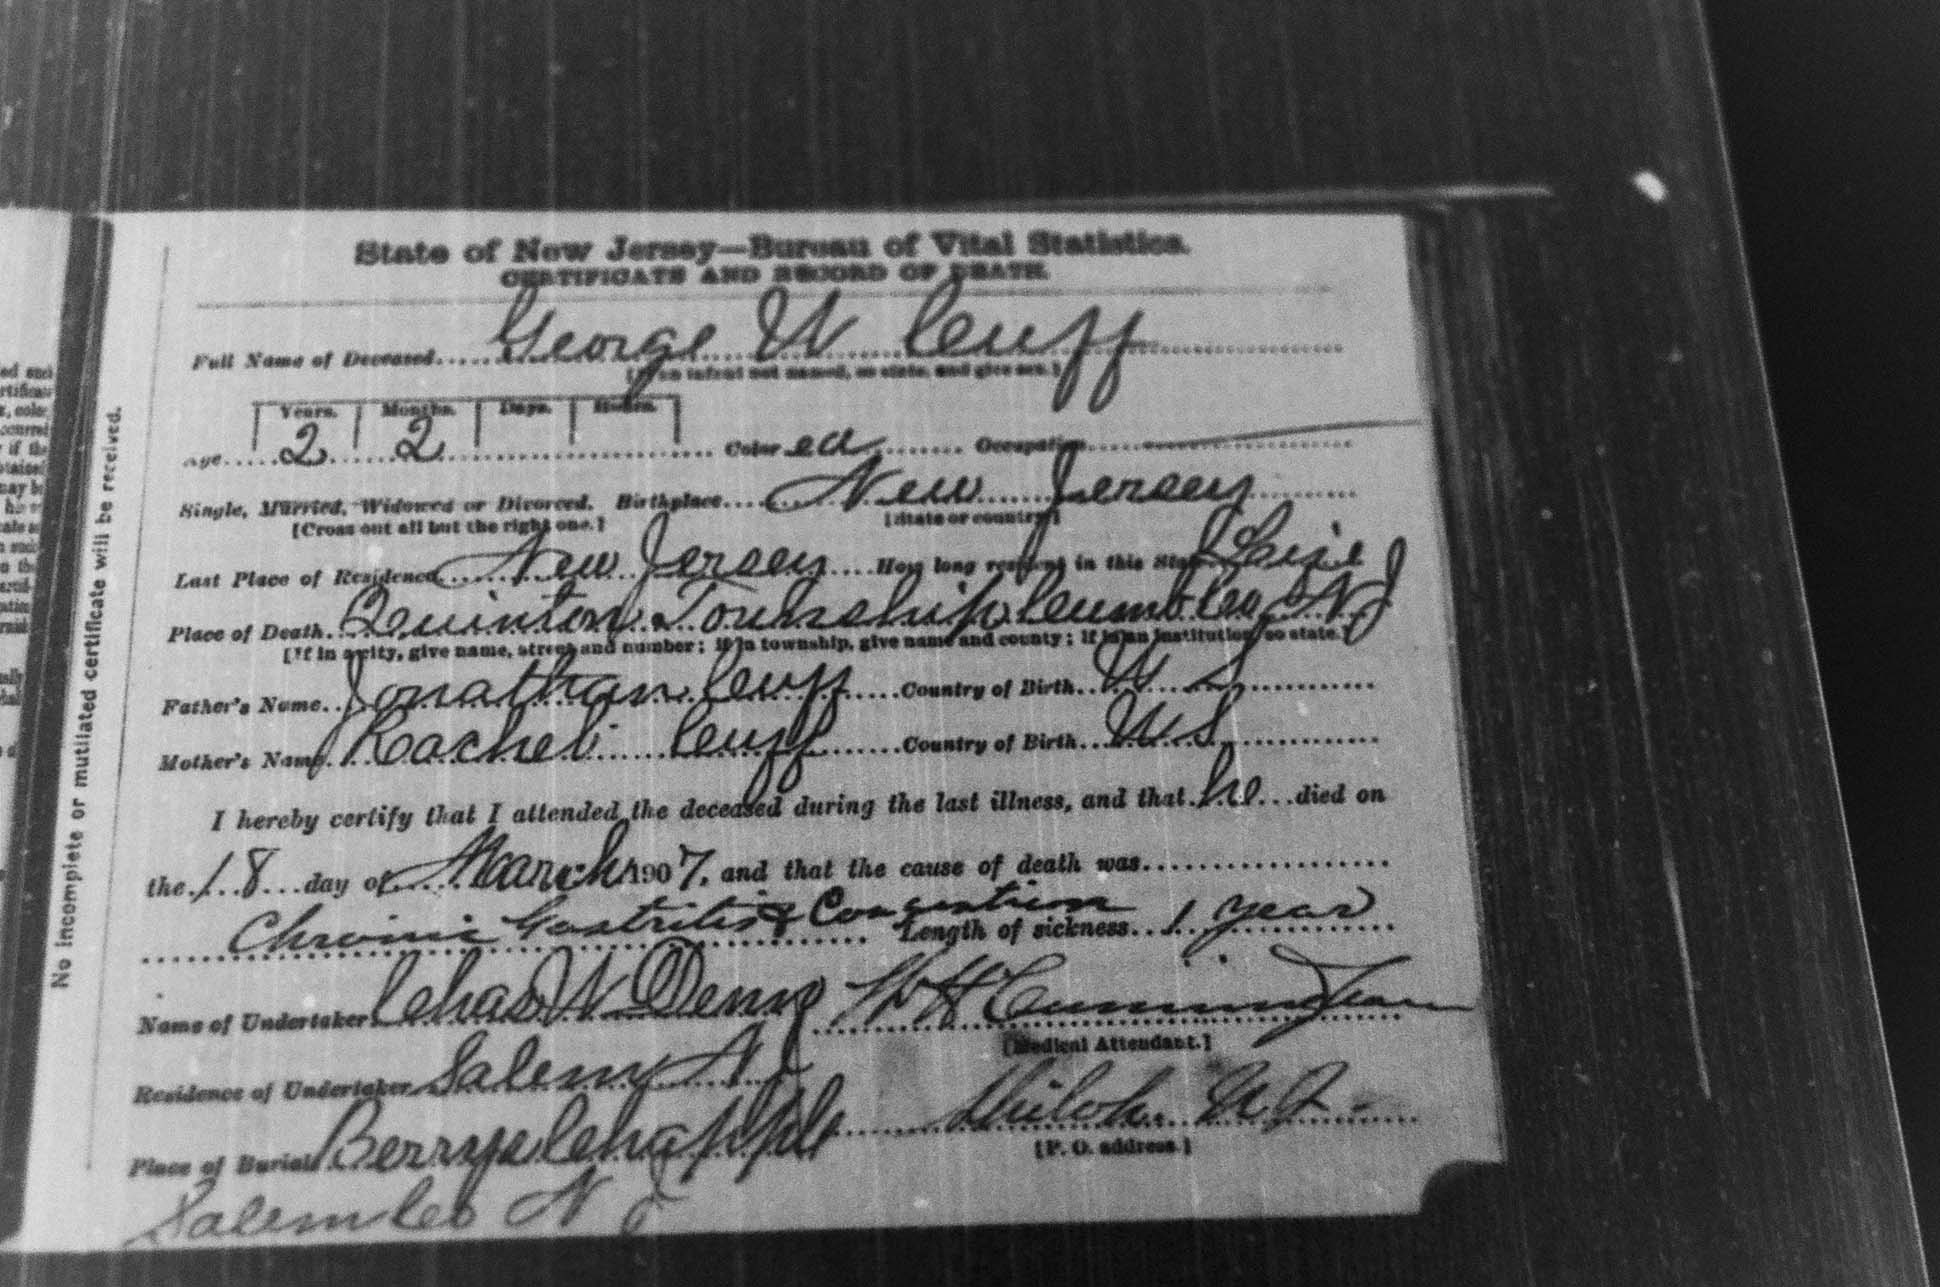 State of New Jersey—Bureau of Vital Statistics.
CERTIFICATE AND RECORD OF DEATH.
Full Name of Deceased George W Cuff
[If an infant not named, so state, and give sex.]
Years. Months. Days. Hours.
Age 2 2 Color ed Occupation
Single, Married, Widowed or Divorced. Birthplace New Jersey
[Cross out all but the right one.] [State or country]
Last Place of Residence New Jersey How long resident in this State Life
Place of Death Quinton Township Cumb Co N J
[If in a city, give name, street and number; if in township, give name and county; if in an institution, so state.]
Father's Name Jonathan Cuff Country of Birth U S
Mother's Name Rachel Cuff Country of Birth U S
I hereby certify that I attended the deceased during the last illness, and that he died on
the 18 day of March 1907, and that the cause of death was
Chronic Gastritis & Length of sickness 1 year
Name of Undertaker Chas W Denny W H Cunningham
[Medical Attendant.]
Residence of Undertaker Salem N J
Shiloh. N. J.
Place of Burial Berrys Chappl
[P. O. address.]
Salem Co N J
No incomplete or mutilated certificate will be received.